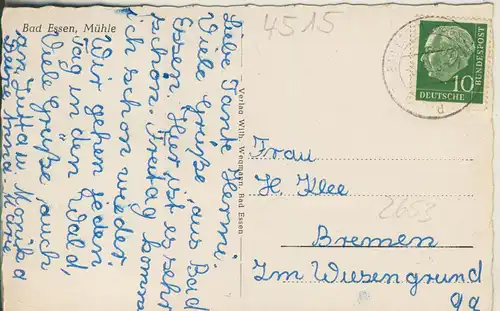 Bad Essen, Mühle
4515
Liebe Tante Hermi.
Viele Grüße aus Bad
Essen. Hier ist es sehr
schön. Freitag komme
ich schon wieder.
Wir gehen jeden
Tag in den Wald,
Viele Grüße, auch
an Jutta u. Monika
Deine Anna-Marie
Verlag Wilh. Wegmann, Bad Essen
10
DEUTSCHE
BUNDESPOST
Frau
H. Klee
2653
Bremen
Im Wiesengrund
9a